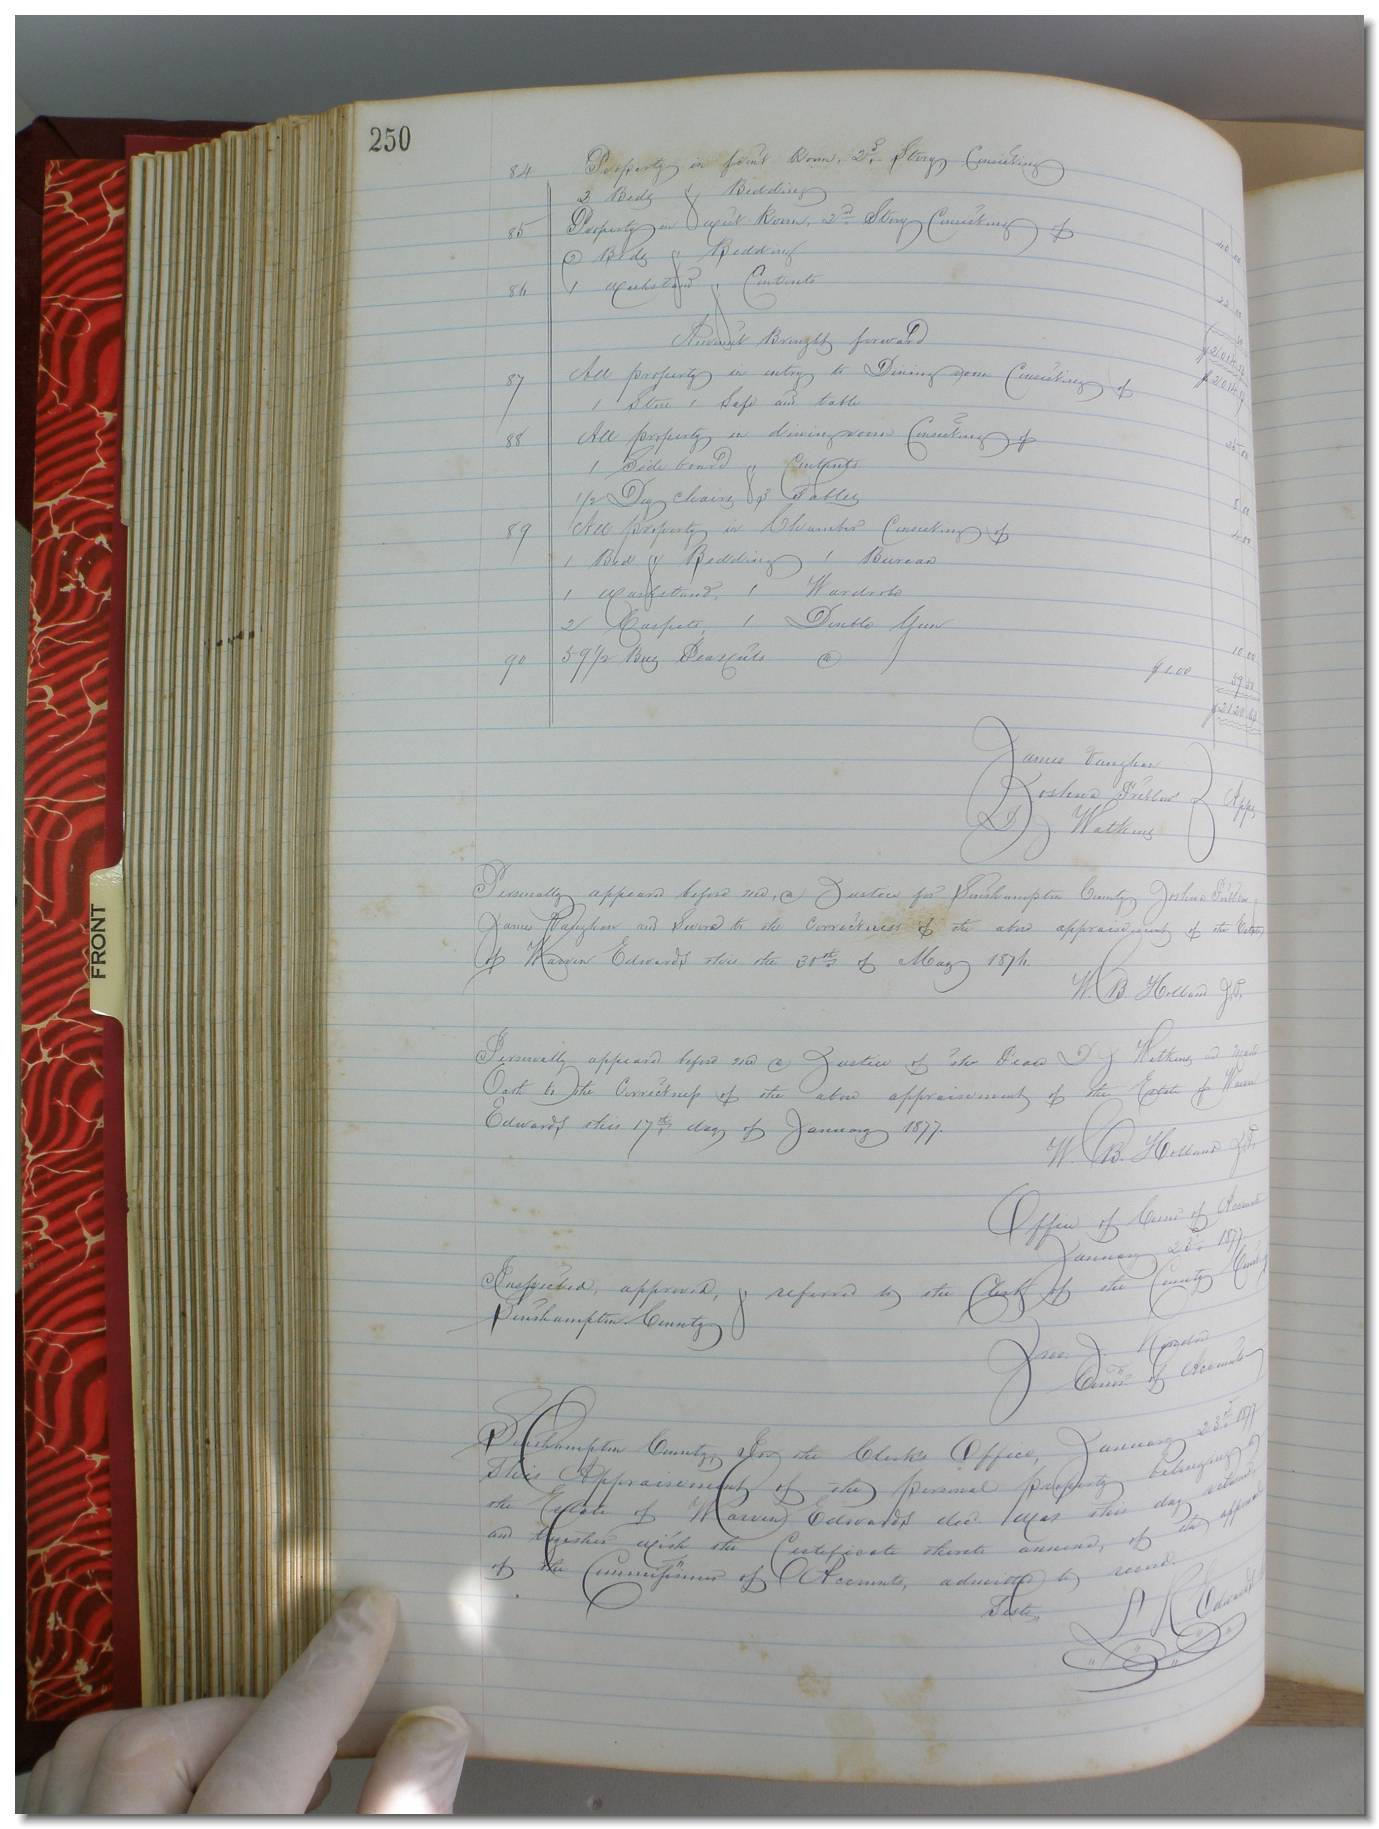 250
84 Property in front Room, 2d Story Consisting
2 Beds & Bedding
85 Property in west Room, 2d Story Consisting of
2 Beds & Bedding
86 1 washstand & Contents
Amount Brought forward
87 All property in entry to Dining room Consisting of
1 Stove 1 Safe and table
88 All property in diningroom Consisting of
1 Side board & Contents
1/2 Doz chairs & 3 Tables
89 All property in Chamber Consisting of
1 Bed & Bedding 1 Bureau
1 washstand, 1 Wardrobe
2 Carpets, 1 Double Gun
10 00
90 59 1/2 Bus Peanuts @ $1.00 59 50
James Vaughan
Joshua Pretlow
D J Watkins
Apps
Personally appeared before me, a Justice for Southampton County Joshua Pretlow
James Vaughan and Sword to the Correctness of the above appraisement of the Estate
of Warren Edwards this the 30th of May 1876.
W. B. Holland J.P.
Personally appeared before me a Justice of the Peace D J Watkins and made
Oath to the Correctness of the above appraisement of the Estate of Warren
Edwards this 17th day of January 1877.
W. B. Holland J.P.
Office of Comr of Accounts
January 23d 1877
Inspected, approved, & referred to the Clerk of the County Court of
Southampton County
Comr of Accounts
Southampton County, In the Clerk's Office, January 23rd 1877
This Appraisement of the personal property belonging to
the Estate of Warren Edwards decd was this day returned,
and together with the Certificate thereto annexed, of the approval
of the Commissioner of Accounts, admitted to record.
Teste,
Edwards
FRONT